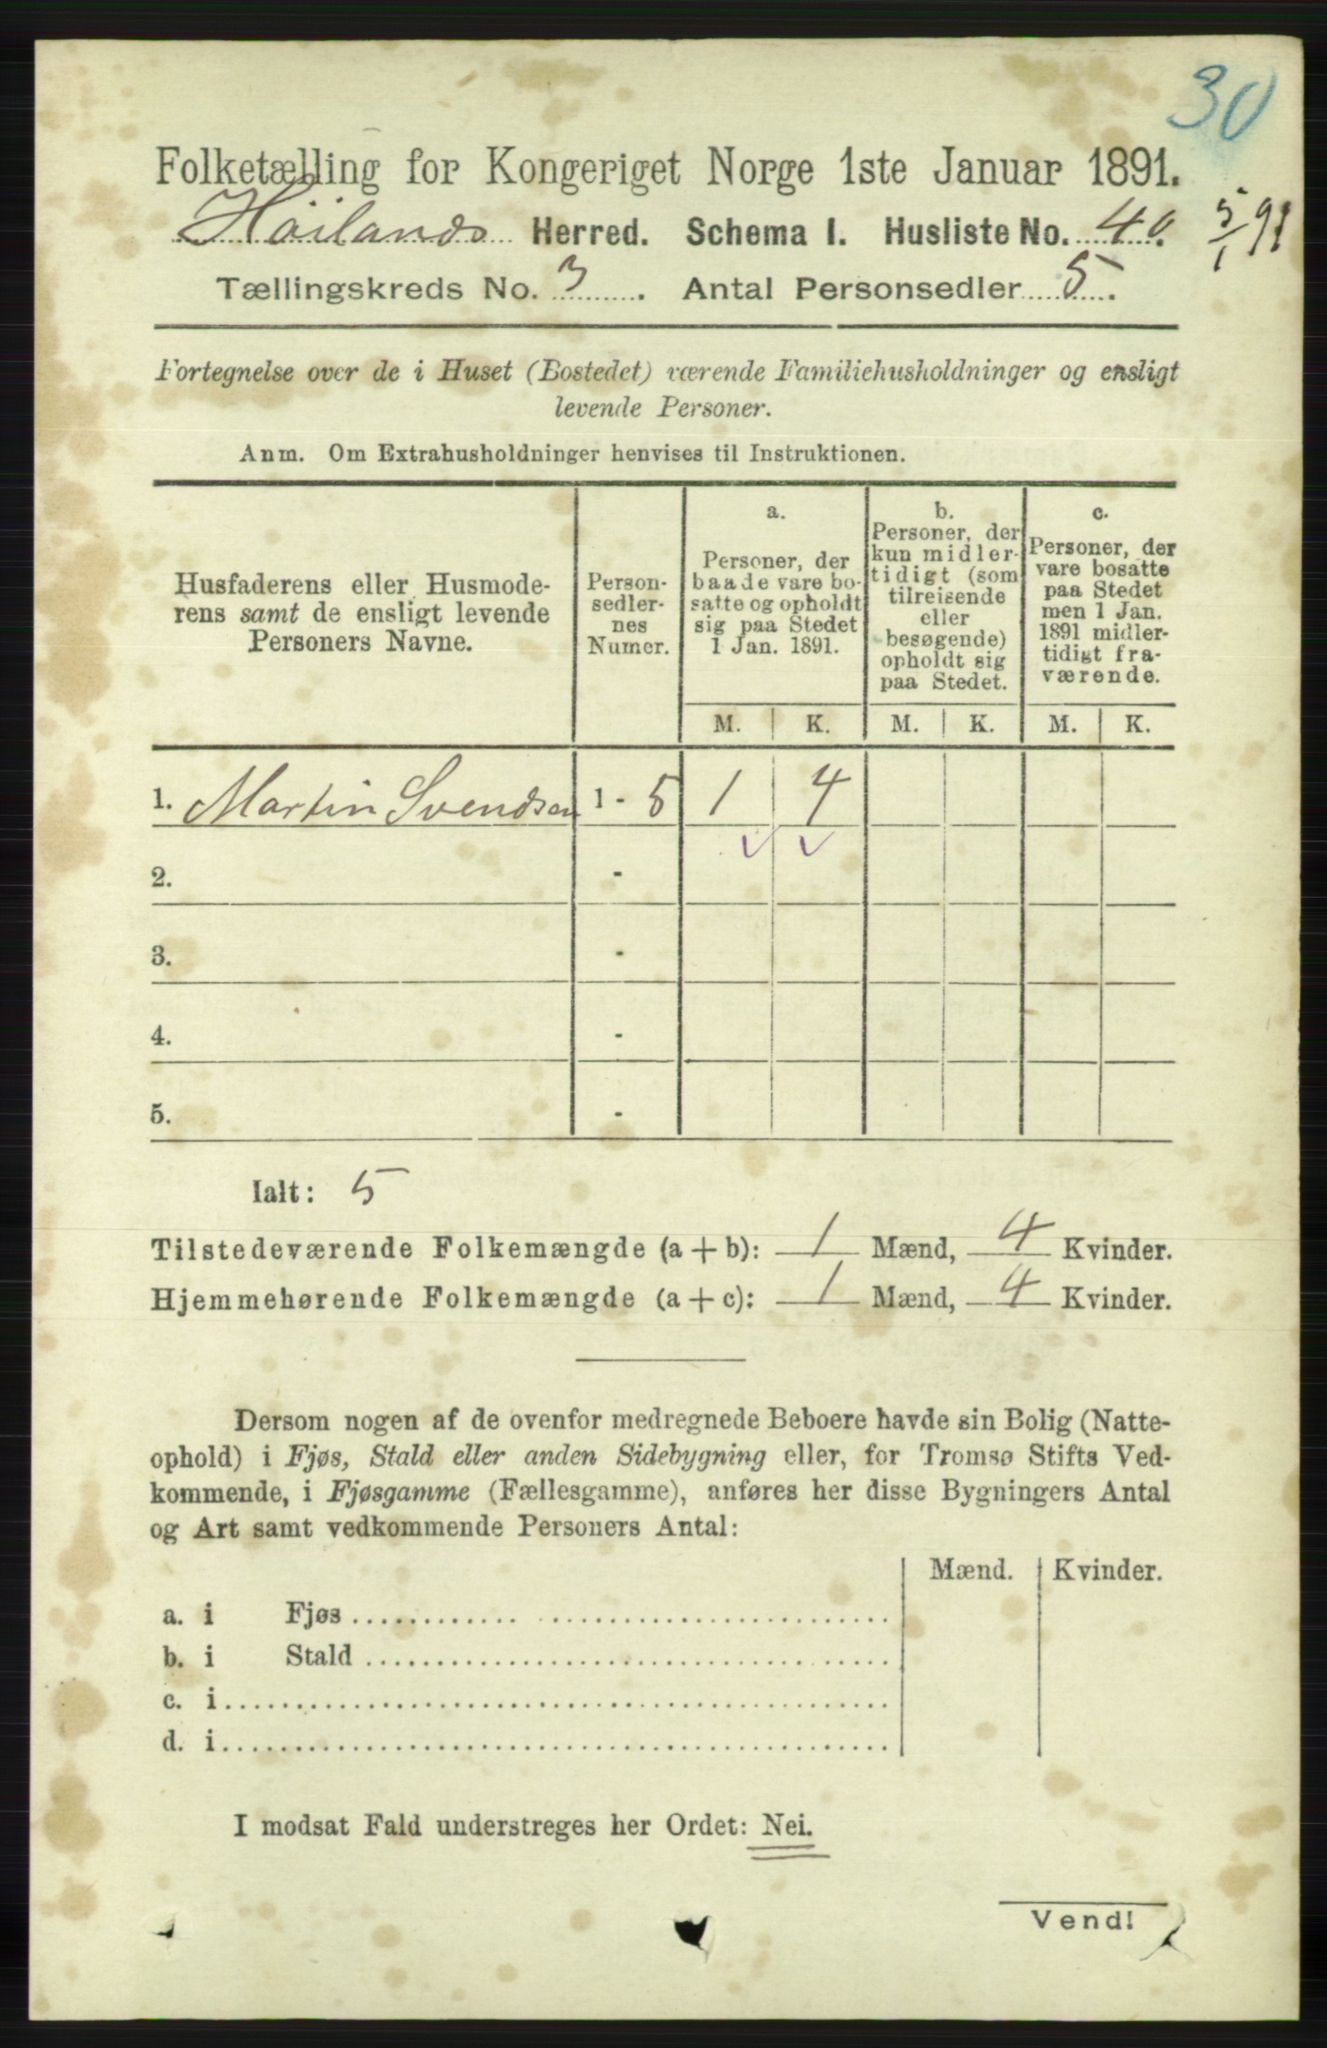 30
Folketælling for Kongeriget Norge 1ste Januar 1891.
Höilands Herred. Schema I. Husliste No. 40. 5/1 91
Tællingskreds No. 3. Antal Personsedler 5.
Fortegnelse over de i Huset (Bostedet) værende Familiehusholdninger og ensligt
levende Personer.
Anm. Om Extrahusholdninger henvises til Instruktionen.
Husfaderens eller Husmode-
rens samt de ensligt levende
Personers Navne.
Person-
sedler-
nes
Numer.
a.
Personer, der
baade vare bo-
satte og opholdt
sig paa Stedet
1 Jan. 1891.
b.
Personer, der
kun midler-
tidigt (som
tilreisende
eller
besøgende)
opholdt sig
paa Stedet.
c.
Personer, der
vare bosatte
paa Stedet
men 1 Jan.
1891 midler-
tidigt fra-
værende.
M. K. M. K. M. K.
1. Martin Svendsen 1 - 5 1 4
2. -
3. -
4. -
5. -
Ialt: 5
Tilstedeværende Folkemængde (a + b): 1 Mænd, 4 Kvinder.
Hjemmehørende Folkemængde (a + c): 1 Mænd, 4 Kvinder.
Dersom nogen af de ovenfor medregnede Beboere havde sin Bolig (Natte-
ophold) i Fjøs, Stald eller anden Sidebygning eller, for Tromsø Stifts Ved-
kommende, i Fjøsgamme (Fællesgamme), anføres her disse Bygningers Antal
og Art samt vedkommende Personers Antal:
Mænd. Kvinder.
a. i Fjøs
b. i Stald
c. i
d. i
I modsat Fald understreges her Ordet: Nei.
Vend!